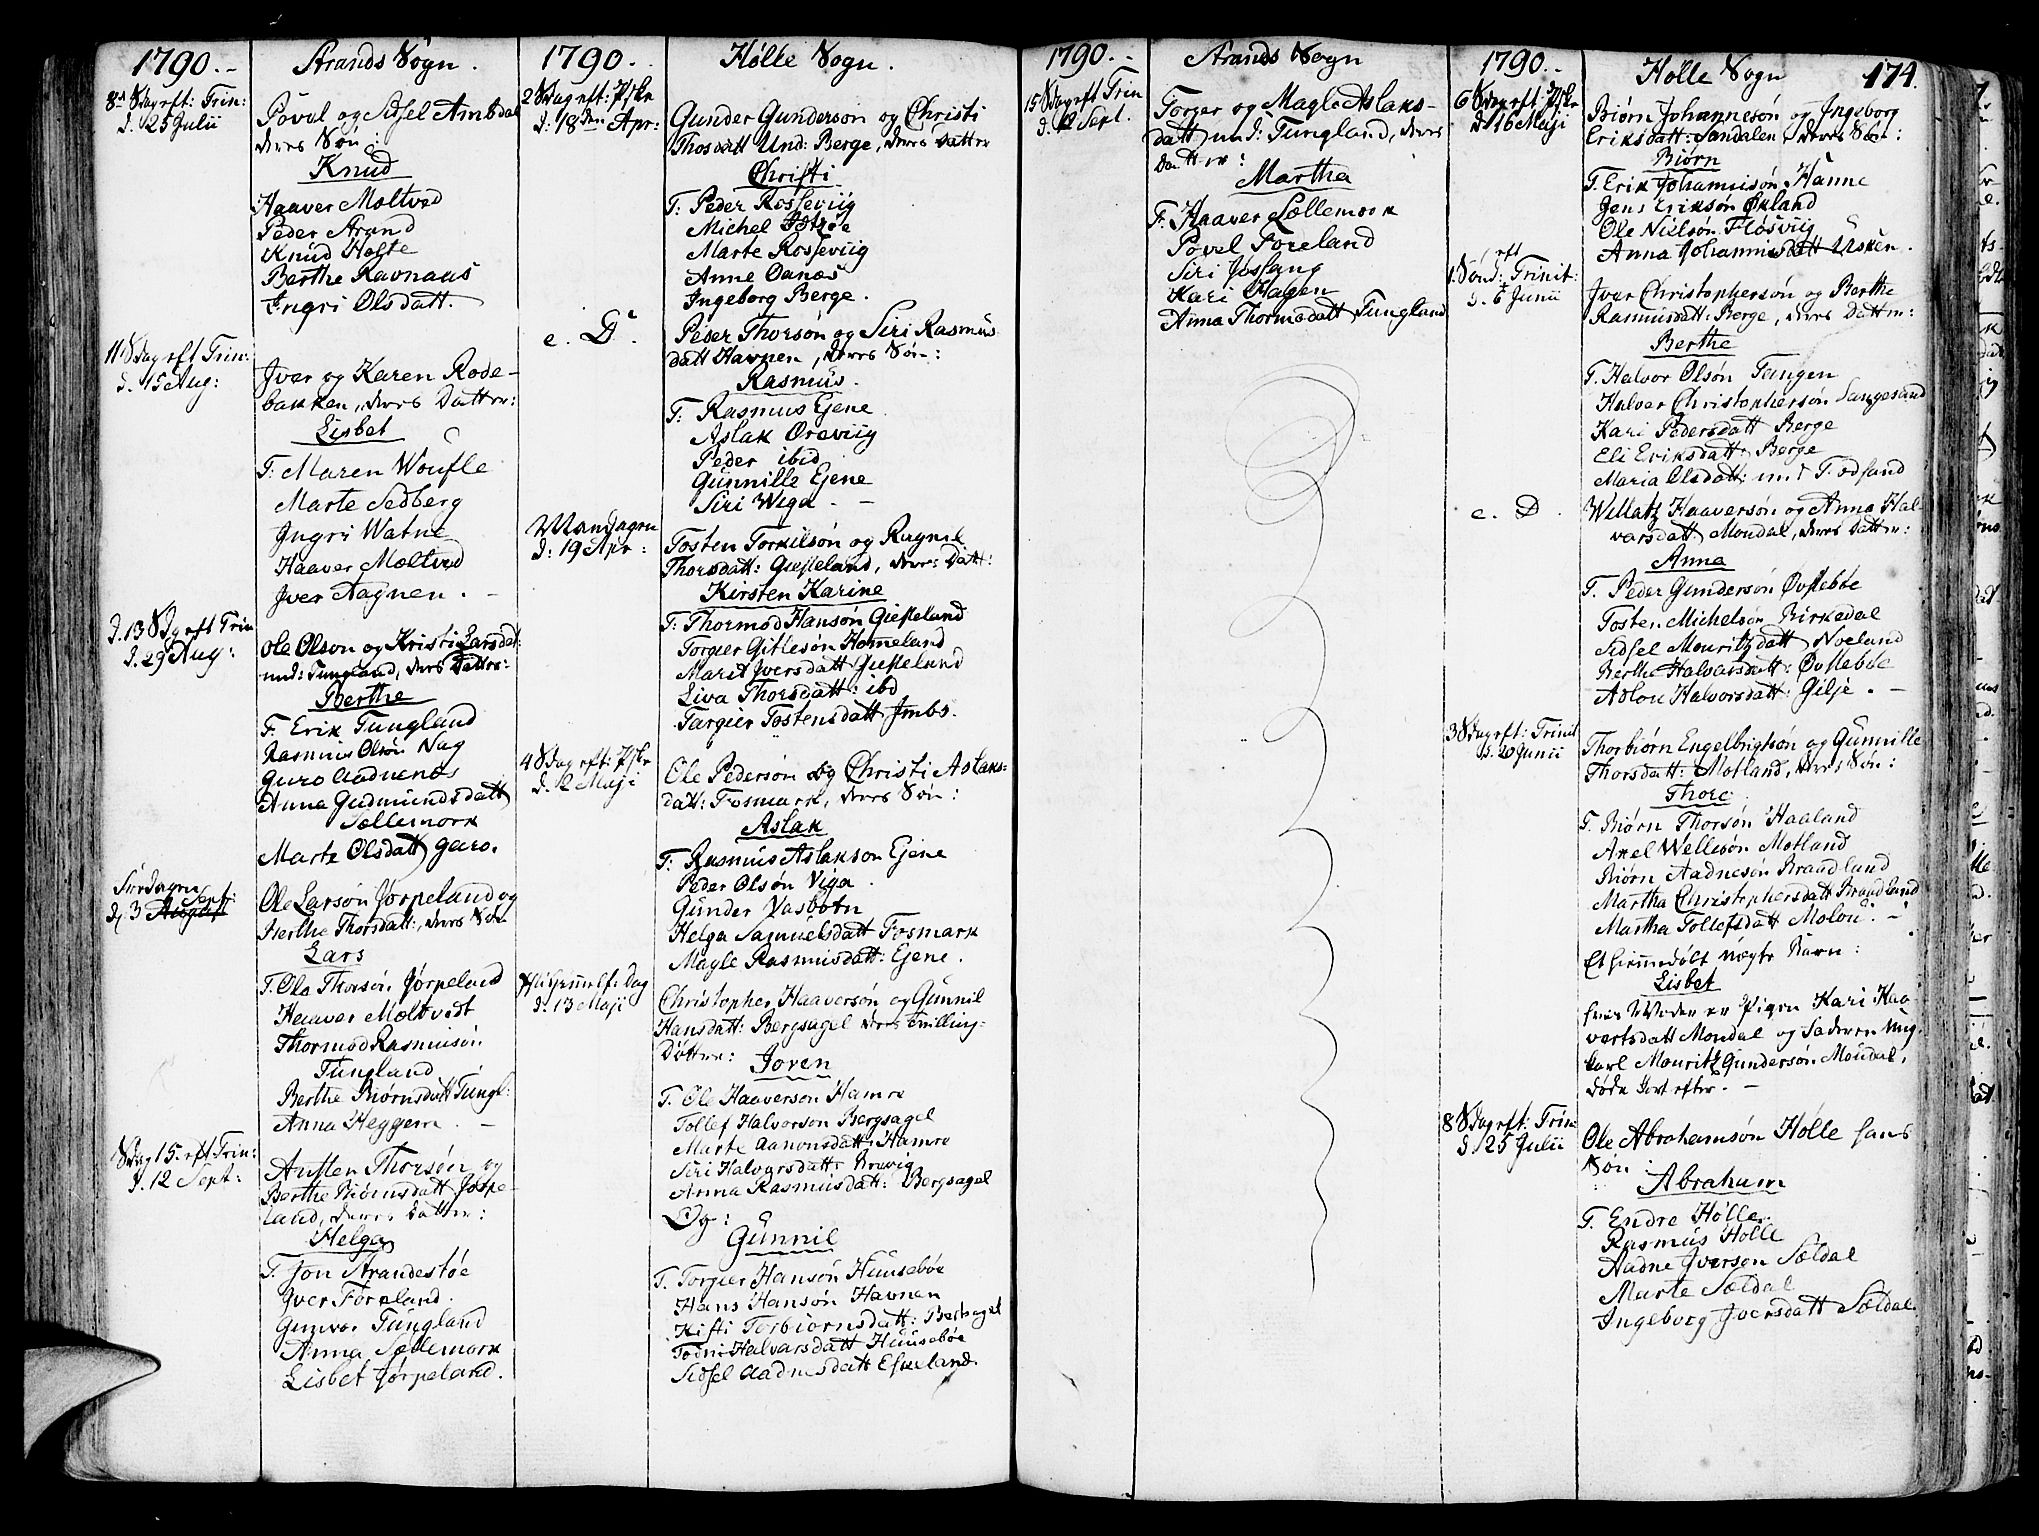 1790.
Strands Sogn.
8de Sdag eft: Trin:
d. 25 Julii
Povel og Sidsel Ambdal
deres Søn:
Knud
Haaver Mæltved
Peder Strand
Knud Holte
Berthe Ravnaas
Ingri Olsdatt.
11 Sdag eft Trin:
d. 15 Aug:
Iver og Karen Rode-
bakken, deres Datter:
Lisbet
T. Maren Woufle
Marte Sedberg
Ingri Watne
Haaver Mæltved
Iver Tagnen.
d. 13 Sdg eft Trin
d. 29 Aug:
Ole Olson og Kristi Larsdat:
und: Tungland, deres Datter:
Berthe
T. Erik Tungland
Rasmus Olsøn Nag
Guro Aadnenæs
Anna Gudmundsdatt
Sællemork
Marta Olsdatt Garo.
Søndagen
d. 3 August Sept:
Ole Larsøn Jørpeland og
Herthe Thorsdatt:, deres Søn
Lars
T. Ola Thorsøn Jørpeland
Haaver Moltvedt
Thormod Rasmusøn
Tungland
Berthe Biørnsdatt Tungl:
Anna Heggem.
Sdag 15. eft Trin:
d. 12 Sept:
Austen Thorsøn og
Berthe Biørnsdatt Jørpe-
land, deres Datter:
Helga
T. Jon Strandestøe
Iver Foreland.
Gunvor Tungland
Anna Sællemork
Lisbet Jørpeland.
1790.
Hølle Sogn.
2 Sdag eft: Pske
d. 18den Apr:
Gunder Gunderson og Christi
Thosdatt Und: Berge, deres Datter
Christi
T: Peder Rosseviig
Michel
Marte Rosseviig
Anne Oanæs
Ingeborg Berge.
e. D.
Peder Thorsøn og Siri Rasmus
datt Havnen, deres Søn:
Rasmus.
T: Rasmus Ejene
Aslak Øreviig
Peder ibid
Gunnille Ejene
Siri Wiga
Mandagen
d. 19 Apr:
Tosten Torkilsøn og Ragnil
Thorsdatt: Giesteland, deres Datt:
Kirsten Karine
T: Thormod Hansøn Giesteland
Torgier Gitlesøn Hommeland
Marit Iversdatt Giesteland
Liva Thorsdatt: ibd
Targier Tostensdatt Imbs.
4 Sdag eft: Pske
d. 2 Maji
Ole Pedersøn og Christi Aslaks-
datt: Fosmark, deres Søn:
Aslak
T: Rasmus Aslakson Ejene
Peder Olsøn Viga
Gunder Vasbotn
Helga Samuelsdatt Fosmark
Magle Rasmusdatt: Ejene.
Chri Himelf: Dag
d. 13 Maji
Christopher Haaversøn og Gunnil
Hansdatt: Bergsagel deres tvilling-
Døttre: Joren
T. Ole Haaverson Hamre
Tollef Halvorson Bergsagel
Marte Aanonsdatt: Hamre
Siri Halvorsdatt: Brevig
Anna Rasmusdatt: Bergsagel
Og:
Gunnil
T. Torgier Hansøn Huusebøe
Hans Hansøn Havnen
Kisti Torbiornsdatt: Bersagel
Todni Halvarsdatt Huusebøe
Sidsel Aadnesdatt Eskeland.
1790.
Strands Sogn
15 Sdag eft Trin
d. 12 Sept.
Torger og Magle Aslaks-
datt und: Tungland, deres
Datter:
Martha
T. Haaver Sællemork
Povel Foreland
Siri Jøssang
Kari Hagen
Anna Thormodatt Tungland
1790.
Holle Sogn
174.
6 Sdag eft: Pske
d. 16 Maji
Biørn Johannesøn og Ingeborg
Eriksdatt: Sandalen, deres Søn:
Biørn
T. Erik Johannisøn Hanne
Jens Eriksøn Økland
Ole Nielson Fløsviig
Anna Johannisdatt Usken.
1. Sønd: eft Trinit:
d. 6 Junii
Iver Christophersøn og Berthe
Rasmusdatt: Berge, deres Datter:
Berthe
T. Halvor Olsøn Tangen
Halver Christophersøn Langesand
Kari Pedersdatt Berge
Eli Eriksdatt: Berge
Maria Olsdatt: und
e. D.
Willatz Haaversøn og Anna Hal-
varsdatt Mondal, deres Datter:
Anna
T. Peder Gundersøn Øvstebøe
Tosten Michelsøn Birkedal
Sidsel Mouritzdatt Noeland
Berthe Halvarsdatt: Øvstebøe
Aslou Halvorsdatt: Gilje.
3 Sdag eft: Trinit
d. 20 Junii
Thorbiørn Engelbrigtsøn og Gunnille
Thorsdatt: Motland, deres Søn:
Thore
T. Biørn Thorsøn Haaland
Axel Wellesøn Motland
Biørn Aadnesøn Braadland
Martha Christophersdatt Braadland
Martha Tollefsdatt Molou.
Et hiemmedøbt uægte Barn:
Lisbet
hvis Moder er Pigen Kari Haa-
vorsdatt Mondal og Faderen ung-
karl Mouritz Gundersøn Mondal,
døde kort efter.
8 Sdag eft: Trin:
d. 25 Julii
Ole Abrahamsøn Hølle hans
Søn
Abraham
T. Endre Hølle
Rasmus Hølle
Aadne Iverson Sældal
Marte Sældal
Ingeborg Iversdatt Sældal.